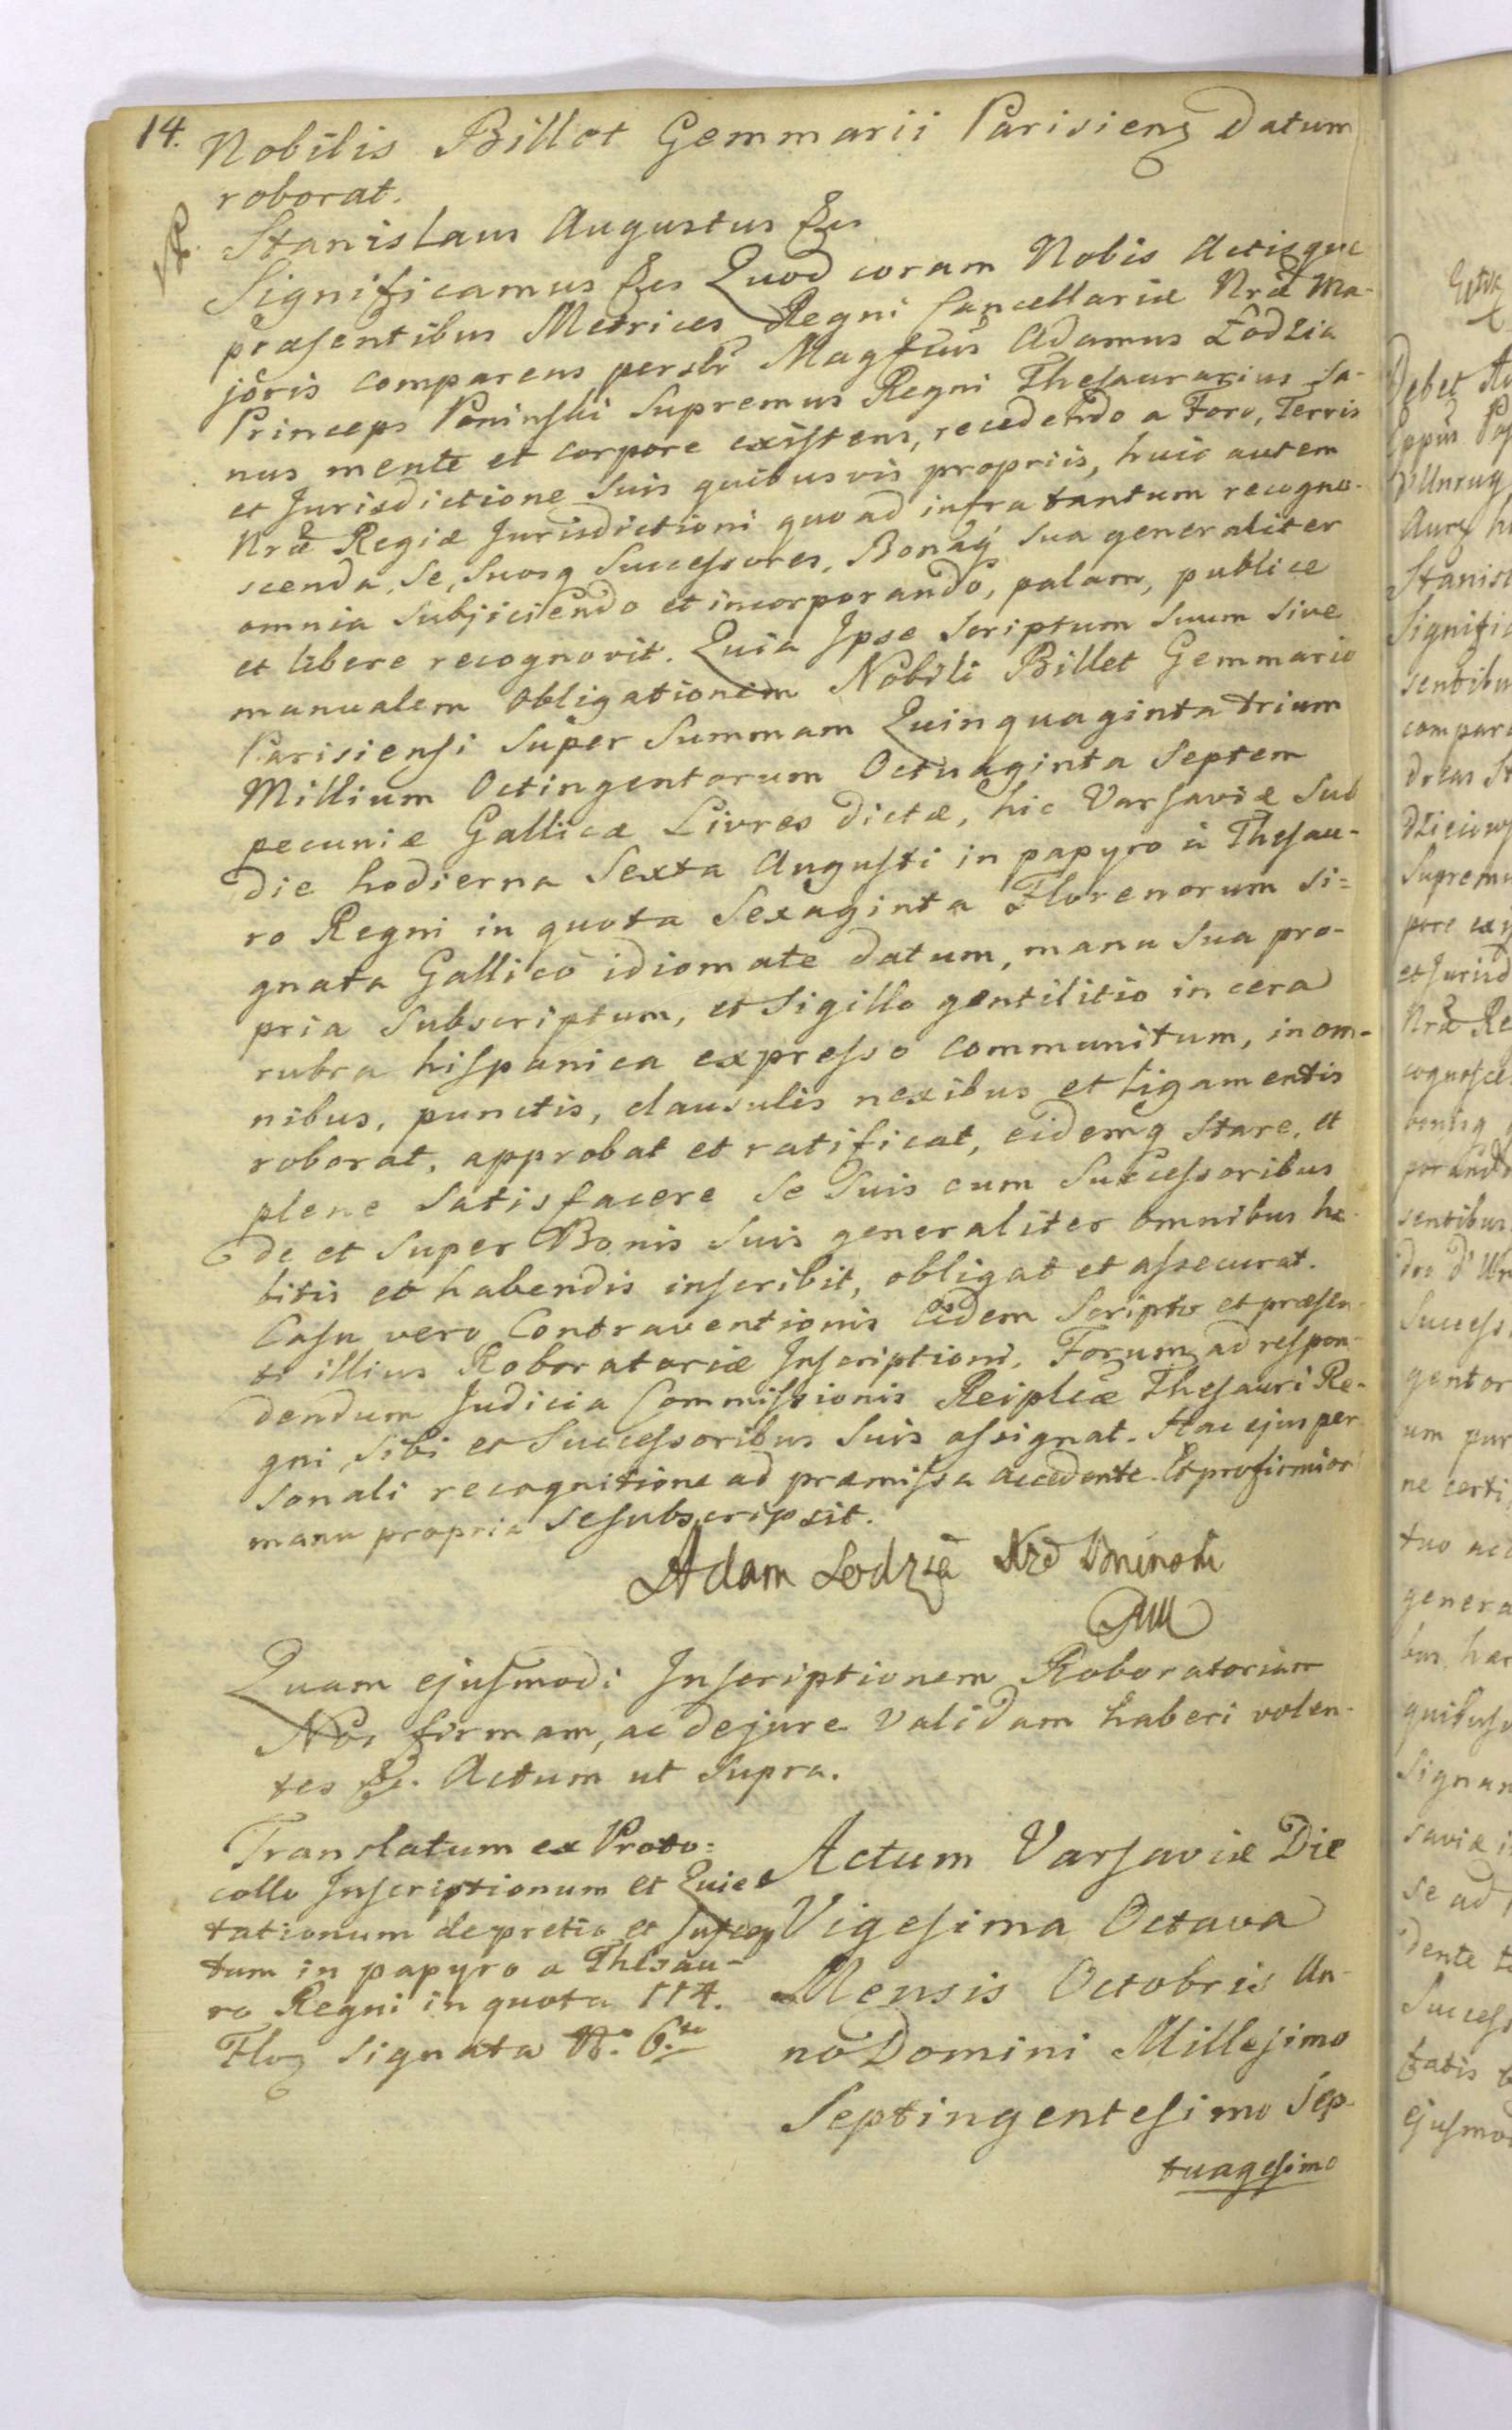 14.
Nobilis Billet Gemmarii Parisieng Datum
roborat.
Stanislaus Augustus &cs
Significamus &cs Quod coram Nobis Actisque
præsentibus Metrices Regni Cancellariæ Nræ Ma-
joris comparens persłr Magfcus Adamus Łodzia
Princeps Poninski Supremus Regni Thesaurarius Sa-
nus mente et corpore existens, recedendo a Foro, Terris
et Jurisdictione Suis quibusvis propriis, huic autem
Nræ Regiæ Jurisdictioni quoad infra tantum recogno-
scenda, Se, Suosq Successores, Bonaq Sua generaliter
omnia Subjiciendo et incorporando, palam, publice
et libere recognovit. Quia Ipse Scriptum Suum Sive
manualem Obligationem Nobili Billet Gemmario
Parisiensi Super Summam Quinquaginta trium
Millium Octingentorum Octuaginta Septem
pecuniæ Gallicæ Livres dictæ, hic Varsaviæ Sub
die hodierna Sexta Augusti in papyro à Thesau-
ro Regni in quota Sexaginta Florenorum Si=
gnata Gallico idiomate datum, manu Sua pro-
pria Subscriptum, et Sigillo gentilitio in cera
rubra hispanica expresso communitum, in om-
nibus, punctis, clausulis nexibus et ligamentis
roborat, approbat et ratificat, eidemq Stare, et
plene Satisfacere Se Suis cum Successoribus
de et Super Bonis Suis generaliter omnibus ha-
bitis et habendis inscribit, obligat et assecurat.
Casu vero Contraventionis eidem Scripto et præsen-
ti illius Roboratoriæ Inscriptioni, Forum ad respon-
dendum Judicia Commissionis Reiplcæ Thesauri Re-
gni, Sibi et Successoribus Suis assignat. Hac ejus per-
sonali recognitione ad præmissa accedente. Et pro firmior
manu propria Se subscripsit.
Adam Lodzia Xże Poninski
Quam ejusmodi Inscriptionem Roboratoriam
Nos firmam, ac de jure validam haberi volen-
tes &c. Actum ut Supra.
Translatum ex Proto=
collo Inscriptionum et Quie
tationum de pretio et Suscep
tum in papyro a Thesau-
ro Regni in quota 114.
Floz Signata N: 6.to
Actum Varsaviæ Die
Vigesima Octava
Mensis Octobris An-
no Domini Millesimo
Septingentesimo Sep-
tuagesimo